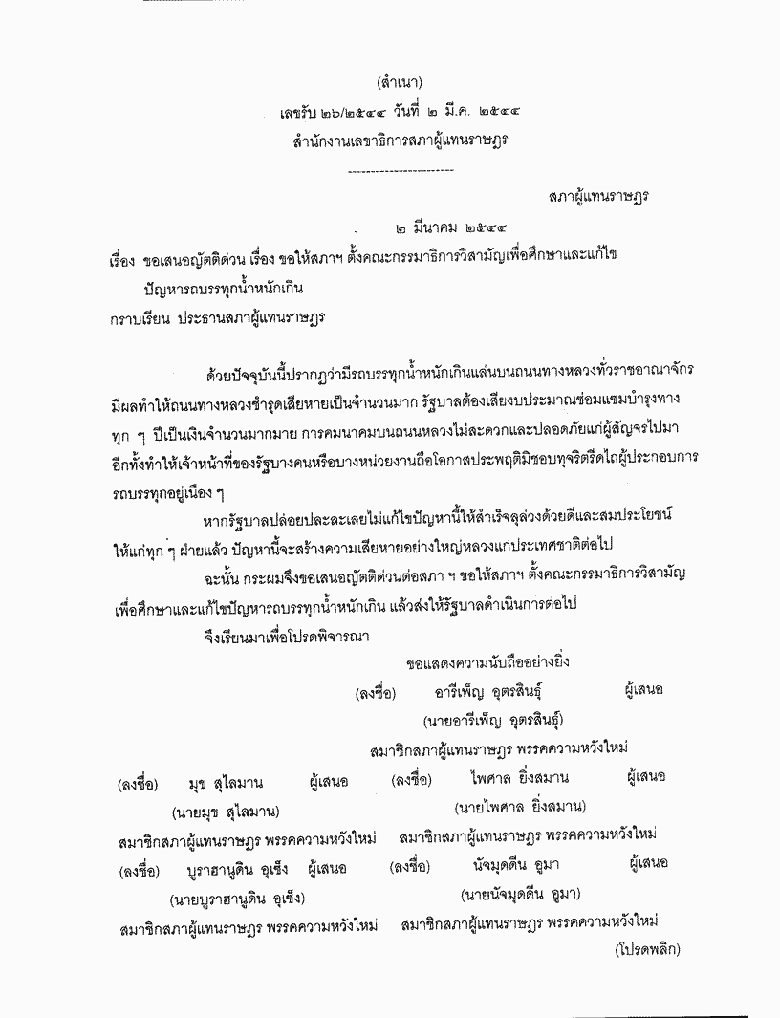 (สำเนา)
เลขรับ ๒๖/๒๕๔๔ วันที่ ๒ มี.ค. ๒๕๔๔
สำนักงานเลขาธิการสภาผู้แทนราษฎร
-----------------------
สภาผู้แทนราษฎร
๒ มีนาคม ๒๕๔๔
เรื่อง ขอเสนอญัตติด่วน เรื่อง ขอให้สภาฯ ตั้งคณะกรรมาธิการวิสามัญเพื่อศึกษาและแก้ไข
ปัญหารถบรรทุกน้ำหนักเกิน
กราบเรียน ประธานสภาผู้แทนราษฎร
ด้วยปัจจุบันนี้ปรากฏว่ามีรถบรรทุกน้ำหนักเกินแล่นบนถนนทางหลวงทั่วราชอาณาจักร
มีผลทำให้ถนนทางหลวงชำรุดเสียหายเป็นจำนวนมาก รัฐบาลต้องเสียงบประมาณซ่อมแซมบำรุงทาง
ทุก ๆ ปีเป็นเงินจำนวนมากมาย การคมนาคมบนถนนหลวงไม่สะดวกและปลอดภัยแก่ผู้สัญจรไปมา
อีกทั้งทำให้เจ้าหน้าที่ของรัฐบางคนหรือบางหน่วยงานถือโอกาสประพฤติมิชอบทุจริตรีดไถผู้ประกอบการ
รถบรรทุกอยู่เนือง ๆ
หากรัฐบาลปล่อยปละละเลยไม่แก้ไขปัญหานี้ให้สำเร็จลุล่วงด้วยดีและสมประโยชน์
ให้แก่ทุก ๆ ฝ่ายแล้ว ปัญหานี้จะสร้างความเสียหายอย่างใหญ่หลวงแก่ประเทศชาติต่อไป
ฉะนั้น กระผมจึงขอเสนอญัตติด่วนต่อสภา ฯ ขอให้สภาฯ ตั้งคณะกรรมาธิการวิสามัญ
เพื่อศึกษาและแก้ไขปัญหารถบรรทุกน้ำหนักเกิน แล้วส่งให้รัฐบาลดำเนินการต่อไป
จึงเรียนมาเพื่อโปรดพิจารณา
ขอแสดงความนับถืออย่างยิ่ง
(ลงชื่อ) อารีเพ็ญ อุตรสินธุ์ ผู้เสนอ
(นายอารีเพ็ญ อุตรสินธุ์)
สมาชิกสภาผู้แทนราษฎร พรรคความหวังใหม่
(ลงชื่อ) มุข สุไลมาน ผู้เสนอ (ลงชื่อ) ไพศาล ยิ่งสมาน ผู้เสนอ
(นายมุข สุไลมาน) (นายไพศาล ยิ่งสมาน)
สมาชิกสภาผู้แทนราษฎร พรรคความหวังใหม่ สมาชิกสภาผู้แทนราษฎร พรรคความหวังใหม่
(ลงชื่อ) บูราฮานูดิน อุเซ็ง ผู้เสนอ (ลงชื่อ) นัจมุดดีน อูมา ผู้เสนอ
(นายบูราฮานูดิน อุเซ็ง) (นายนัจมุดดีน อูมา)
สมาชิกสภาผู้แทนราษฎร พรรคความหวังใหม่ สมาชิกสภาผู้แทนราษฎร พรรคความหวังใหม่
(โปรดพลิก)